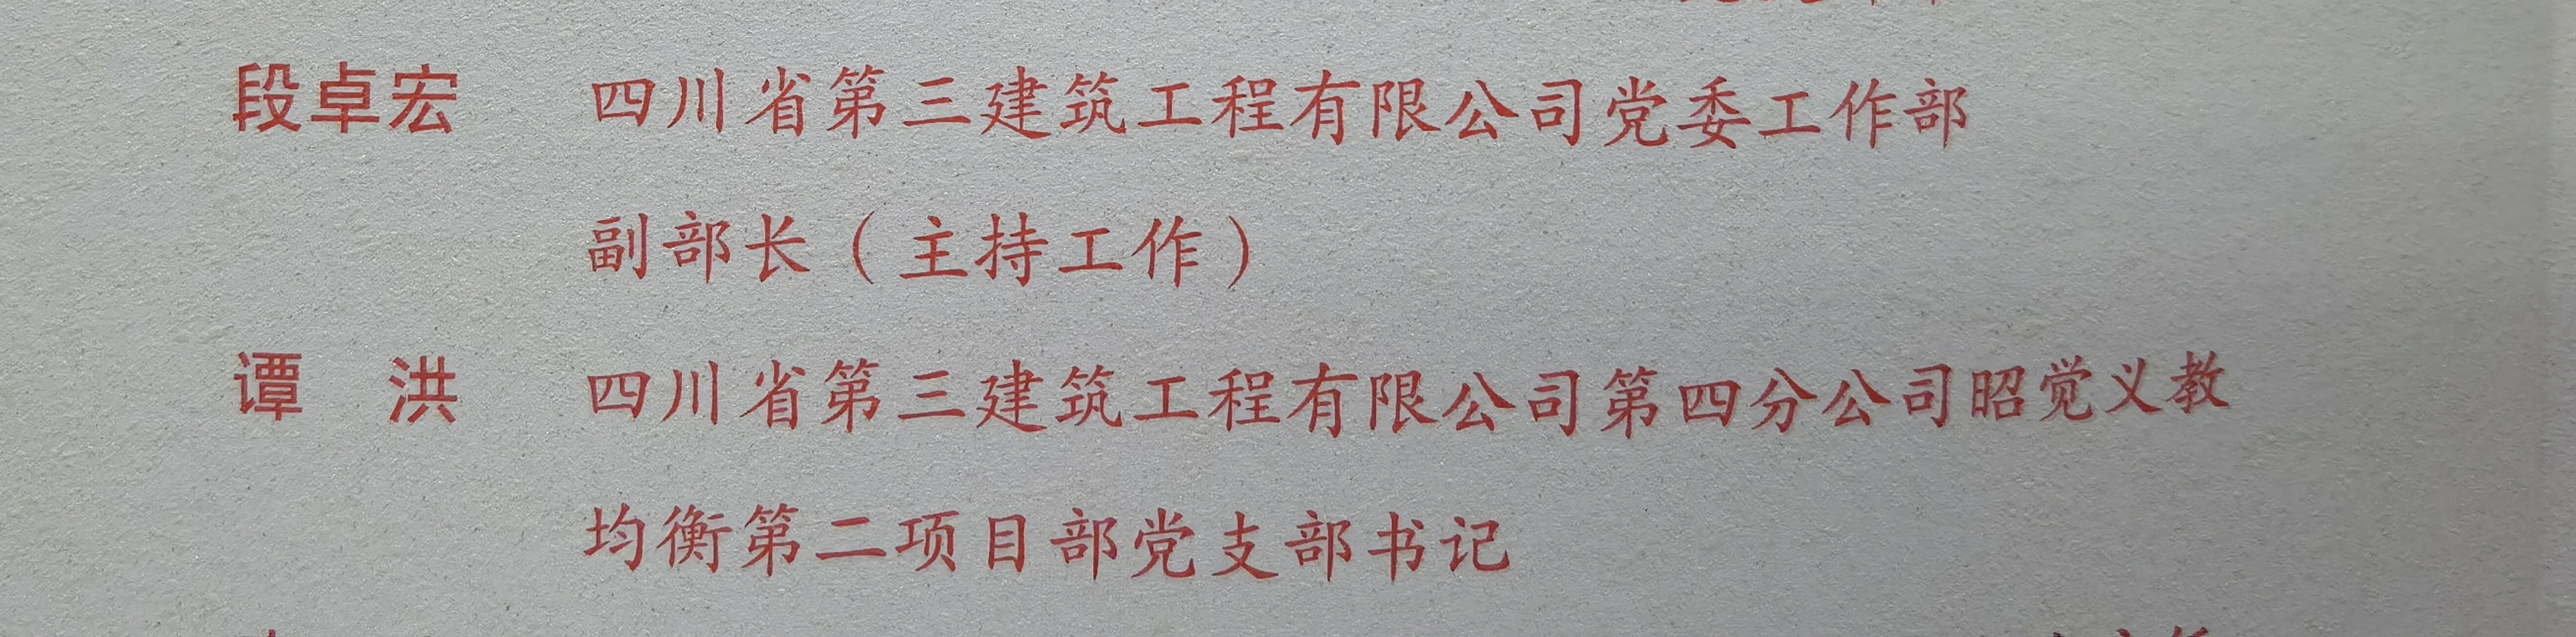 段卓宏 四川省第三建筑工程有限公司党委工作部
副部长（主持工作）
谭 洪 四川省第三建筑工程有限公司第四分公司昭觉义教
均衡第二项目部党支部书记